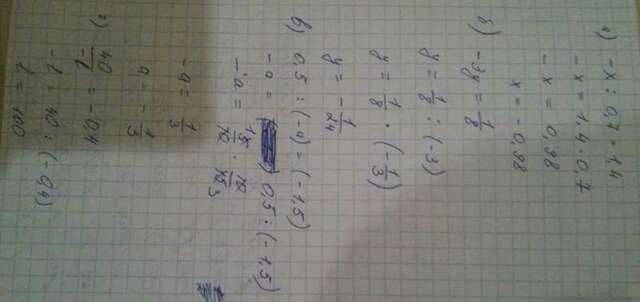 а) -x : 0,7 = 1,4
-x = 1,4 · 0,7
-x = 0,98
x = -0,98
б) -3y = 1/8
y = 1/8 : (-3)
y = 1/8 · (-1/3)
y = -1/24
в) 0,5 : (-a) = (-1,5)
-a = 0,5 : (-1,5)
-a =
-a = 1/3
a = -1/3
г) 40/-l = -0,4
-l = 40 : (-0,4)
l = 100